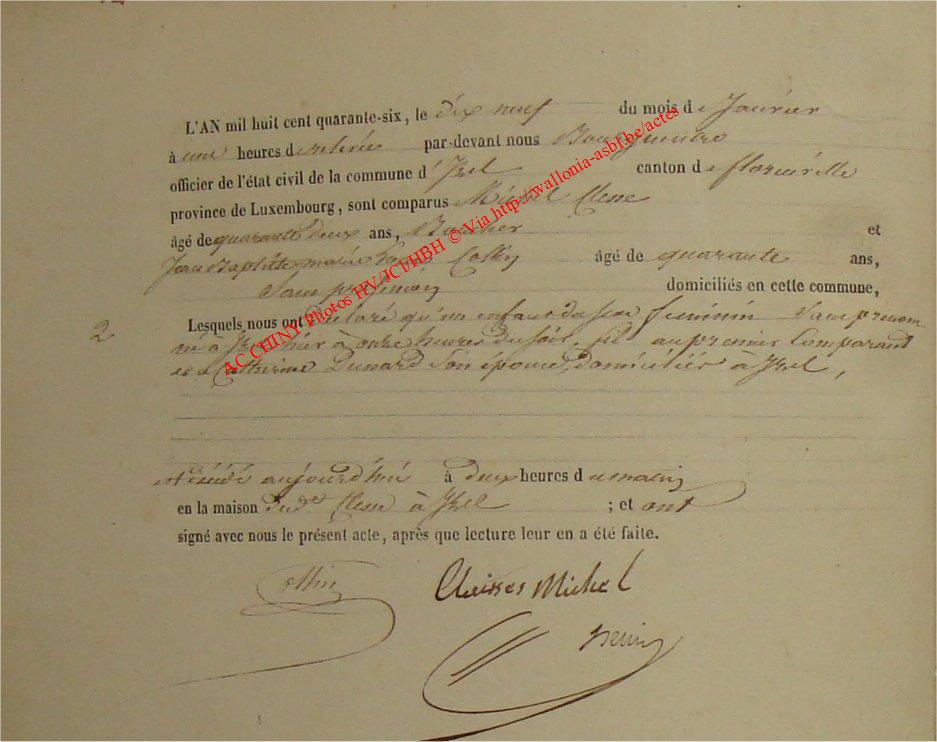 L'AN mil huit cent quarante-six, le dix neuf du mois de Janvier
à une heures de relevée par-devant nous Bourguemtre
officier de l'état civil de la commune d'Izel canton de florenville
province de Luxembourg, sont comparus Michel Clesse
âgé de quarante deux ans, et
Jean Baptiste marie Collin âgé de quarante ans,
Sans profession domiciliés en cette commune,
2
Lesquels nous ont déclaré qu'un enfant du sexe feminin Sans prenom
né à Izel hier à onze heures du soir, fil au premier Comparant
et à Catherine Dunard Son épouse, domiciliés à Izel,
est décédé aujourd'hui à deux heures du matin
en la maison dud. Clesse à Izel ; et ont
signé avec nous le présent acte, après que lecture leur en a été faite.
Collin
Claisses Michel
AC CHINY Photos HV/JCl/HBH © Via http://wallonia-asbl.be/actes